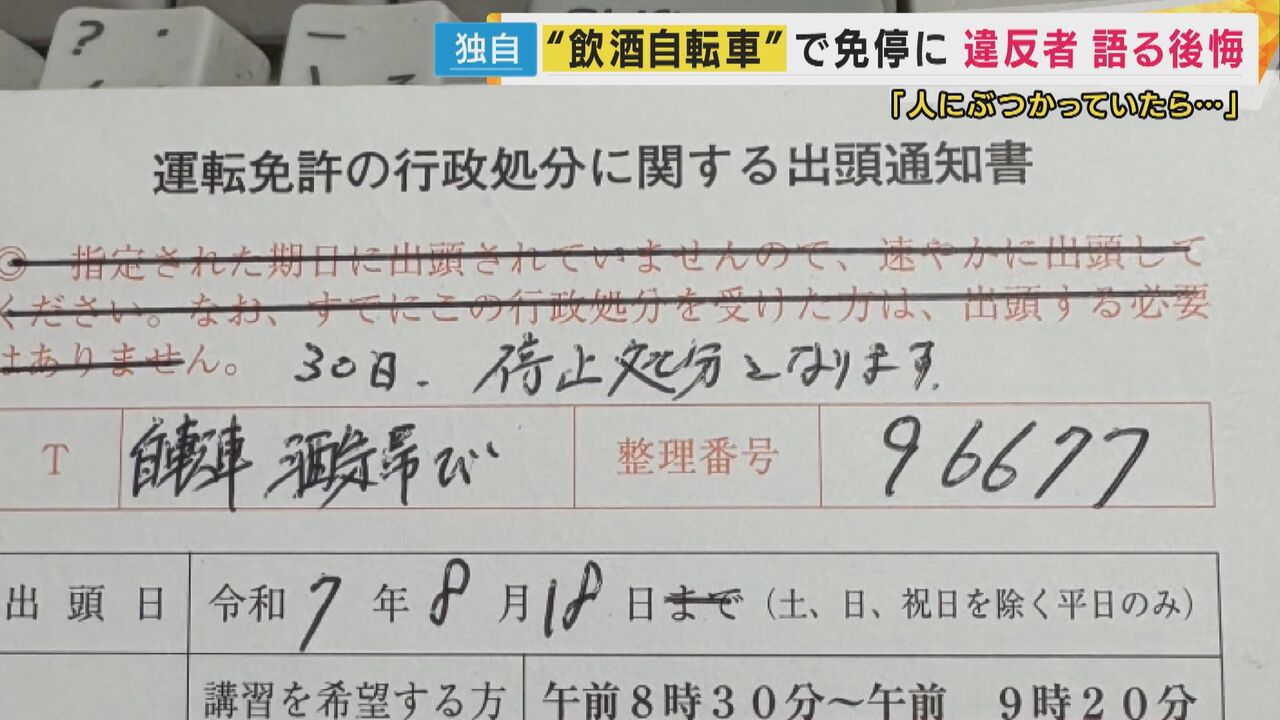 独自 “飲酒自転車”で免停に 違反者 語る後悔
「人にぶつかっていたら…」
運転免許の行政処分に関する出頭通知書
◎ 指定された期日に出頭されていませんので、速やかに出頭して
ください。なお、すでにこの行政処分を受けた方は、出頭する必要
はありません。 30日. 停止処分となります.
T 自転車 酒気帯び 整理番号 96677
出頭日 令和7年8月18日まで(土、日、祝日を除く平日のみ)
講習を希望する方 午前8時30分~午前 9時20分